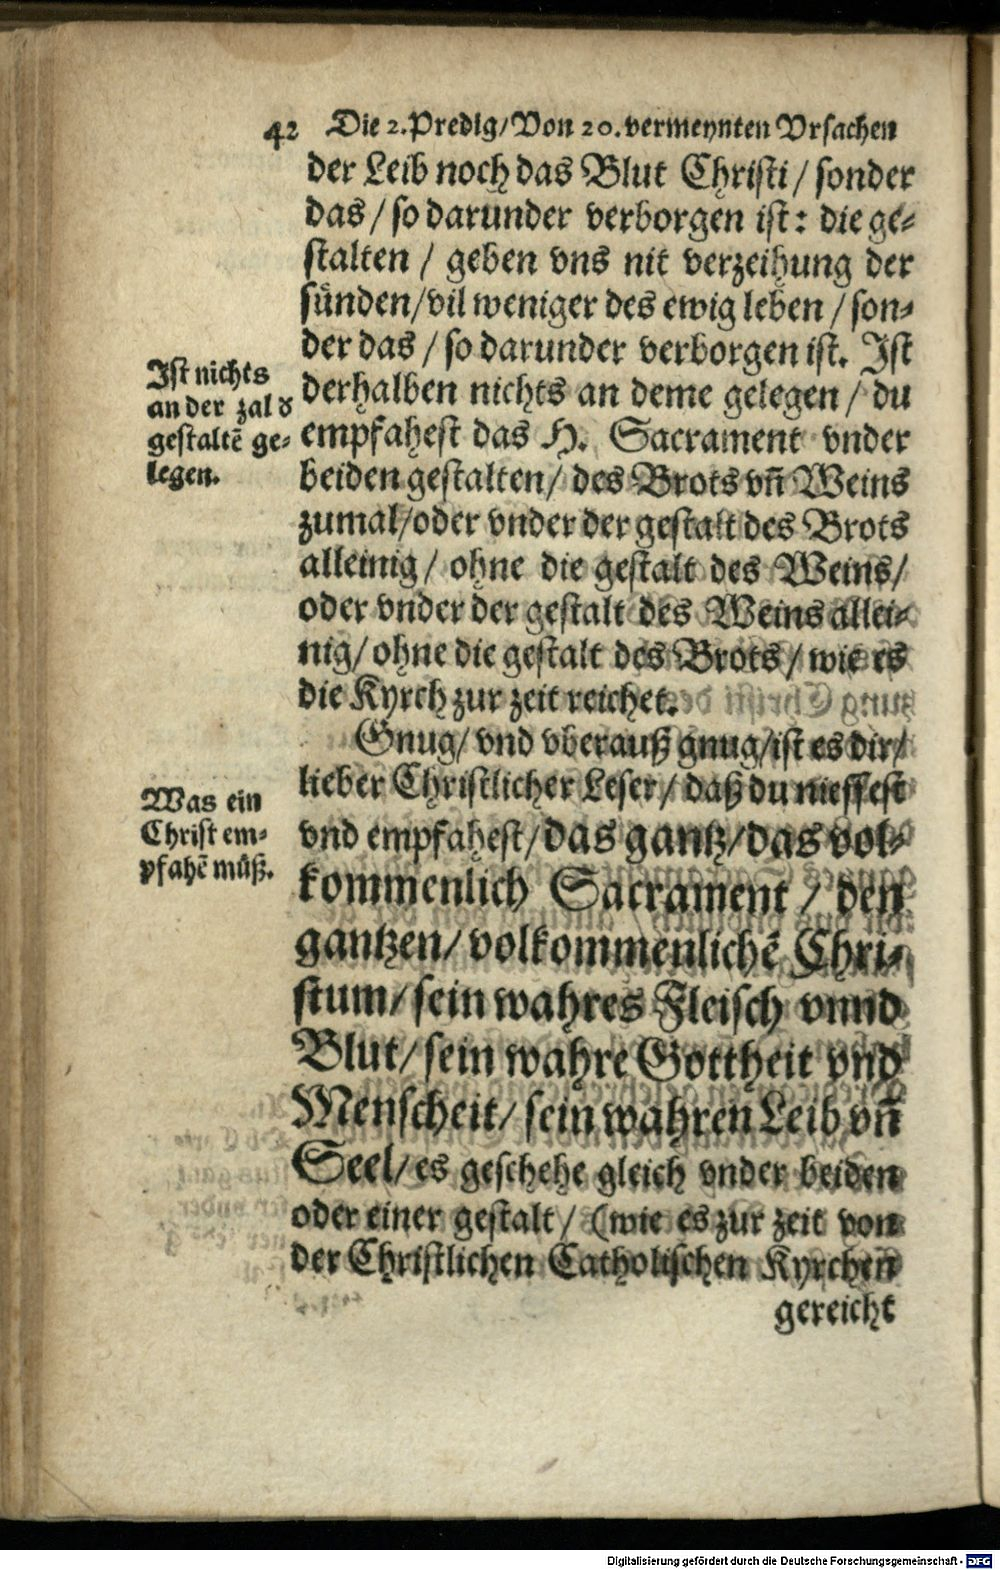 42 Die 2. Predig/ Von 20. vermeynten Vrsachen
der Leib noch das Blut Christi/ sonder
das/ so darunder verborgen ist: die ge-
stalten/ geben vns nit verzeihung der
sünden/ vil weniger des ewig leben/ son-
der das/ so darunder verborgen ist. Ist
derhalben nichts an deme gelegen/ du
empfahest das H. Sacrament vnder
beiden gestalten/ des Brots vñ Weins
zumal/ oder vnder der gestalt des Brots
alleinig/ ohne die gestalt des Weins/
oder vnder der gestalt des Weins allei-
nig/ ohne die gestalt des Brots/ wie es
die Kyrch zur zeit reichet.
Ist nichts
an der zal d
gestaltē ge-
legen.
Gnug/ vnd vberauß gnug/ ist es dir/
lieber Christlicher Leser/ daß du niessest
vnd empfahest/ das gantz/ das vol-
kommenlich Sacrament/ den
gantzen/ volkommenlichē Chri-
stum/ sein wahres Fleisch vnnd
Blut/ sein wahre Gottheit vnd
Menscheit/ sein wahren Leib vñ
Seel/ es geschehe gleich vnder beiden
oder einer gestalt/ (wie es zur zeit von
der Christlichen Catholischen Kyrchen
Was ein
Christ em-
pfahē müß.
gereicht
Digitalisierung gefördert durch die Deutsche Forschungsgemeinschaft - DFG